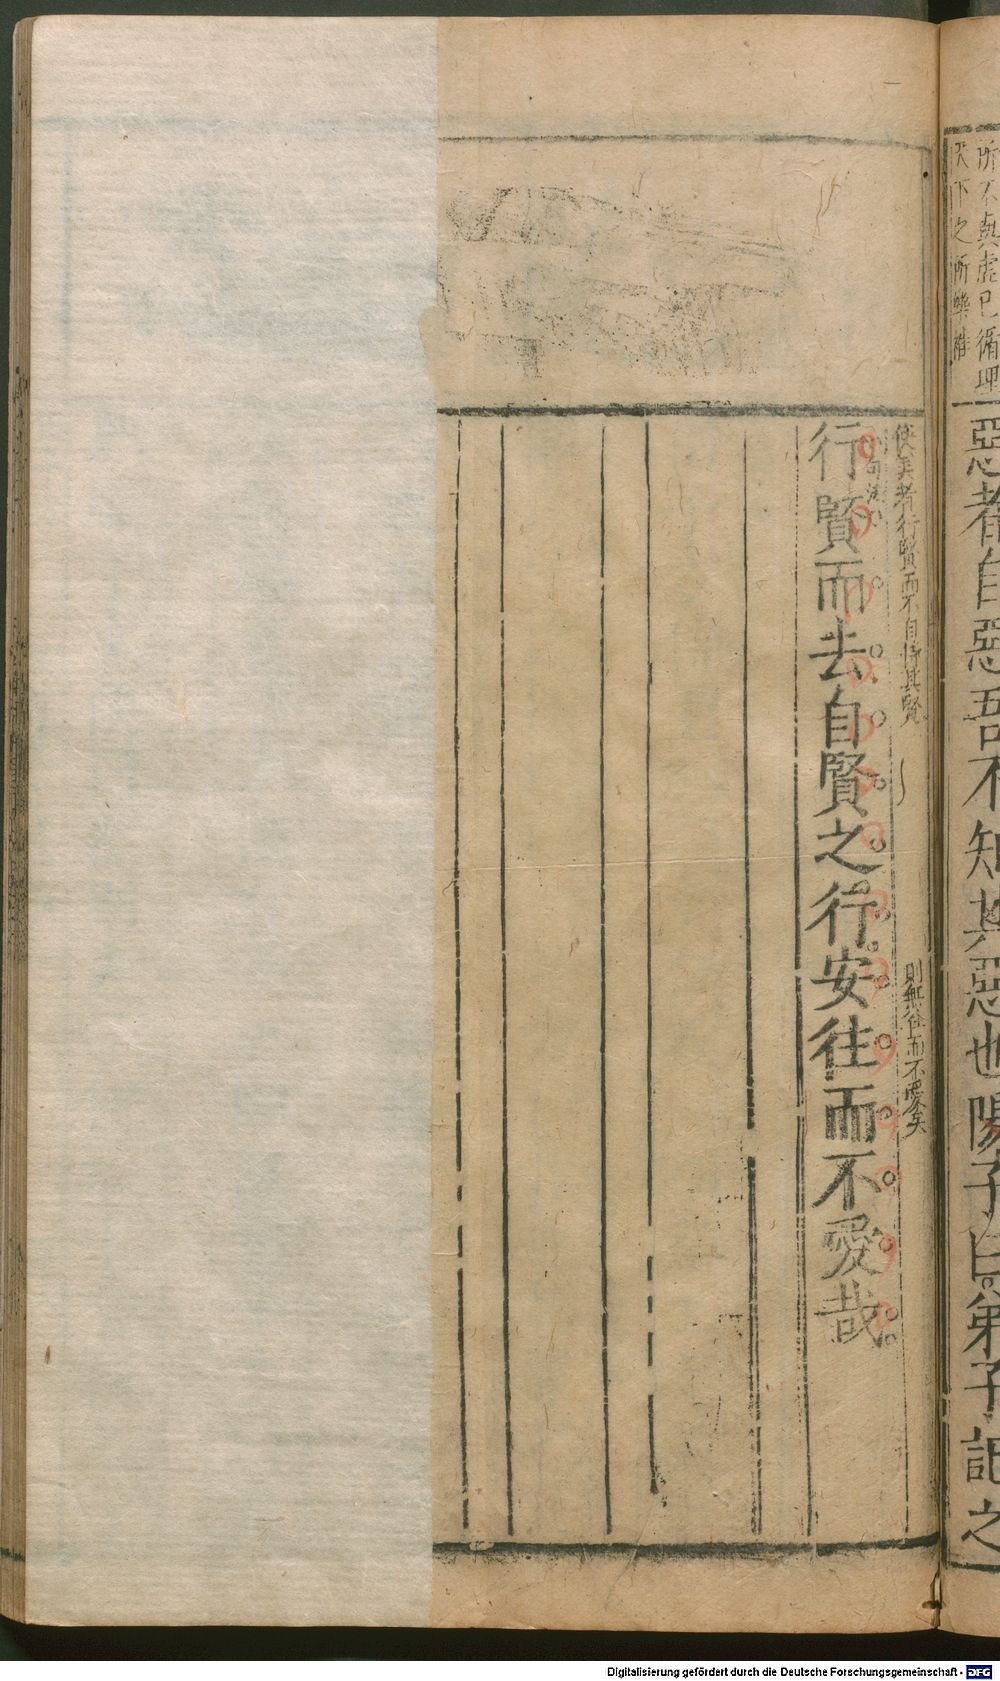 所不眞虛己循理
天下之所樂推
惡者自惡吾不知其惡也陽子曰弟子記之
使美者行賢而不自恃其賢
則無往而不愛矣
句法
行賢而去自賢之行安往而不愛哉
Digitalisierung gefördert durch die Deutsche Forschungsgemeinschaft - DFG